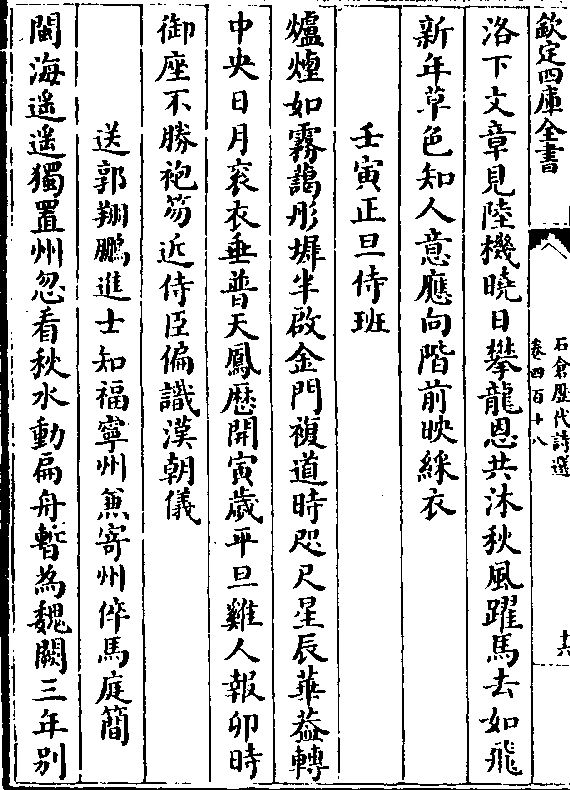 欽定四庫全書
石倉歷代詩選
卷四百十八
十六
洛下文章見陸機曉日攀龍恩共沐秋風躍馬去如飛
新年草色知人意應向階前映綵衣
壬寅正旦侍班
爐煙如霧藹彤墀半啟金門複道時咫尺星辰華蓋轉
中央日月衮衣垂普天鳳歷開寅歲平旦雞人報卯時
御座不勝袍笏近侍臣偏識漢朝儀
送郭翔鵬進士知福寧州兼寄州倅馬庭簡
閩海遥遥獨置州忽看秋水動扁舟暫為魏闕三年别